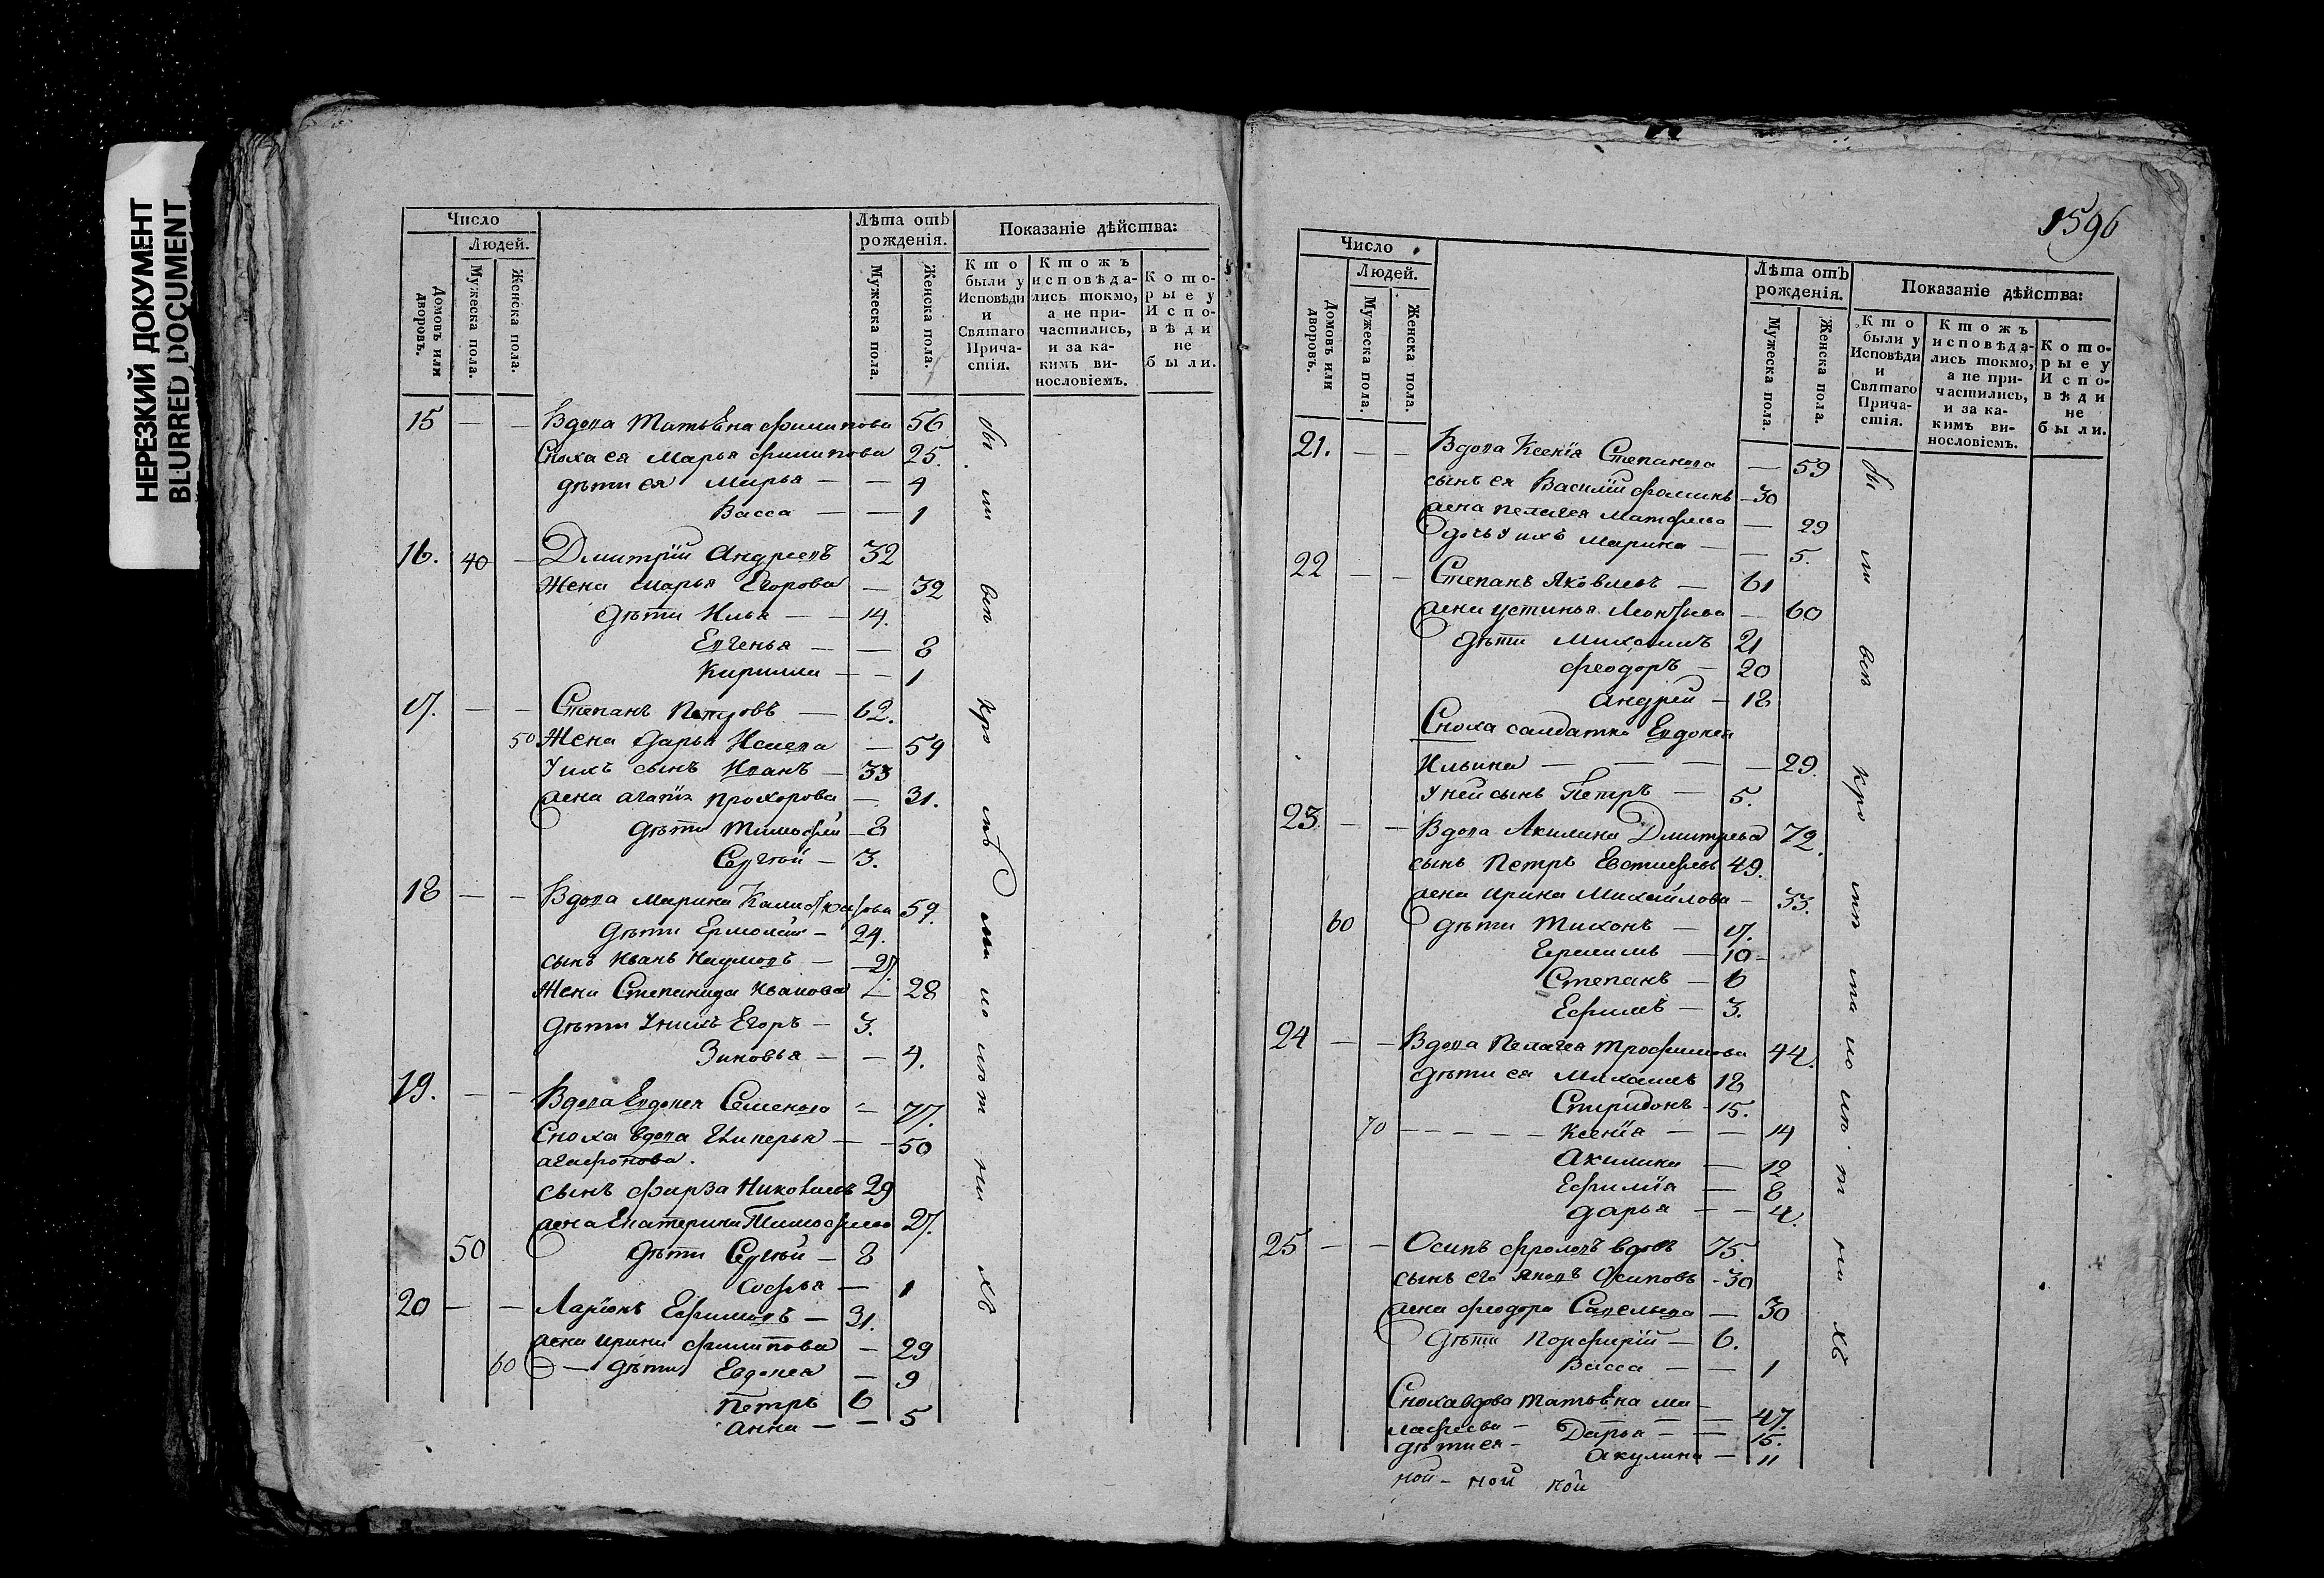 НЕРЕЗКИЙ ДОКУМЕНТ
BLURRED DOCUMENT
Число
Людей.
Домовъ или дворовъ.
Мужеска пола.
Женска пола.
Лѣта отъ рожденія.
Мужеска пола.
Женска пола.
Показаніе дѣйства:
Кто были у Исповѣди и Святаго Прича-стія.
Ктожъ исповѣда-лись токмо, а не при-частились, и за ка-кимъ ви-нословіемъ.
Кото-рые у Испо-вѣди не были.
15 — — Вдова Татьяна Филипова 56
Сноха ея Марья Филипова 25.
дѣти ея Марья — — 4
Васса — — 1
16. 40 — Дмитрїй Андреевъ 32
Жена Марья Егорова — 32
Дѣти Илья — — 14.
Евгенья — — 8
Кирилла — — 1
17. — — Степанъ Петровъ — 62.
50 Жена Дарья Исаева — 59
У ихъ сынъ Иванъ — 33
жена Агапїя Прохорова — 31.
Дѣти Тимофей — 8
Сергѣй — 3.
18 — — Вдова Марина 59.
Дѣти Ермолай — 24.
сынъ Иванъ Наумовъ — 27.
Жена Степанида Иванова — 28
Дѣти у нихъ Егоръ — 3.
Зиновья — — 4.
19. — — Вдова Евдокея Семенова — 77.
Сноха вдова Гликерья — — 50
Агафонова.
сынъ Фирза Николаевъ 29
жена Екатерина Тимофеева 27.
50 Дѣти Сергѣй — 8
Софья — 1
20 — — Ларїонъ Ефимовъ — 31.
жена Ирина Филипова — 29
60 — Дѣти Евдокея — 9
Петръ 6
Анна — — 5
бы ли всѣ кро мѣ ма ло лѣт ни хъ
1596
Число
Людей.
Домовъ или дворовъ.
Мужеска пола.
Женска пола.
Лѣта отъ рожденія.
Мужеска пола.
Женска пола.
Показаніе дѣйства:
Кто были у Исповѣди и Святаго Прича-стія.
Ктожъ исповѣда-лись токмо, а не при-частились, и за ка-кимъ ви-нословіемъ.
Кото-рые у Испо-вѣди не были.
21. — — Вдова Ксенїя Степанова — 59
сынъ ея Василїй Фоминъ — 30
жена Пелагея Матфеева — 29
дочь у ихъ Марина — — 5.
22 — — Степанъ Яковлевъ — 61
жена Устинья Леонтьева — 60
Дѣти Михаилъ 21
Феодоръ — 20
Андрей — 18
Сноха салдатка Евдокея
Ильина — — — — 29.
У ней сынъ Петръ — 5.
23 — — Вдова Акилина Дмитрева 72.
сынъ Петръ 49.
жена Ирина Михайлова — 33.
60 Дѣти Тихонъ — 17.
Герасимъ — 10 —
Степанъ — 6
Ефимъ — 3.
24 — — Вдова Пелагея Трофимова 44.
Дѣти ея Михаилъ 18
Спиридонъ — 15.
70 — — — — — Ксенїя — — 14
Акилина — 12
Ефимїя — 8
Дарья — — 4.
25 — — Осипъ Фроловъ вдовъ 75.
сынъ его Яковъ Осиповъ — 30
жена Феодора Савельева — 30
Дѣти Порфирїй — 6.
Васса — — 1
Сноха вдова Татьяна Ма
лафеева — — — 47.
дѣти ея — Дарья — — 15.
Акулина — 11
ной — ной ной
бы ли всѣ кро мѣ ма ло лѣт ни хъ